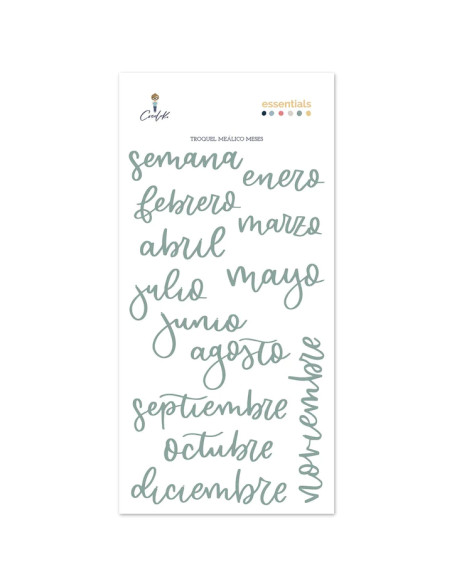 essentials
TROQUEL MEÁLICO MESES
semana
enero
febrero
marzo
abril
mayo
julio
junio
agosto
noviembre
septiembre
octubre
diciembre